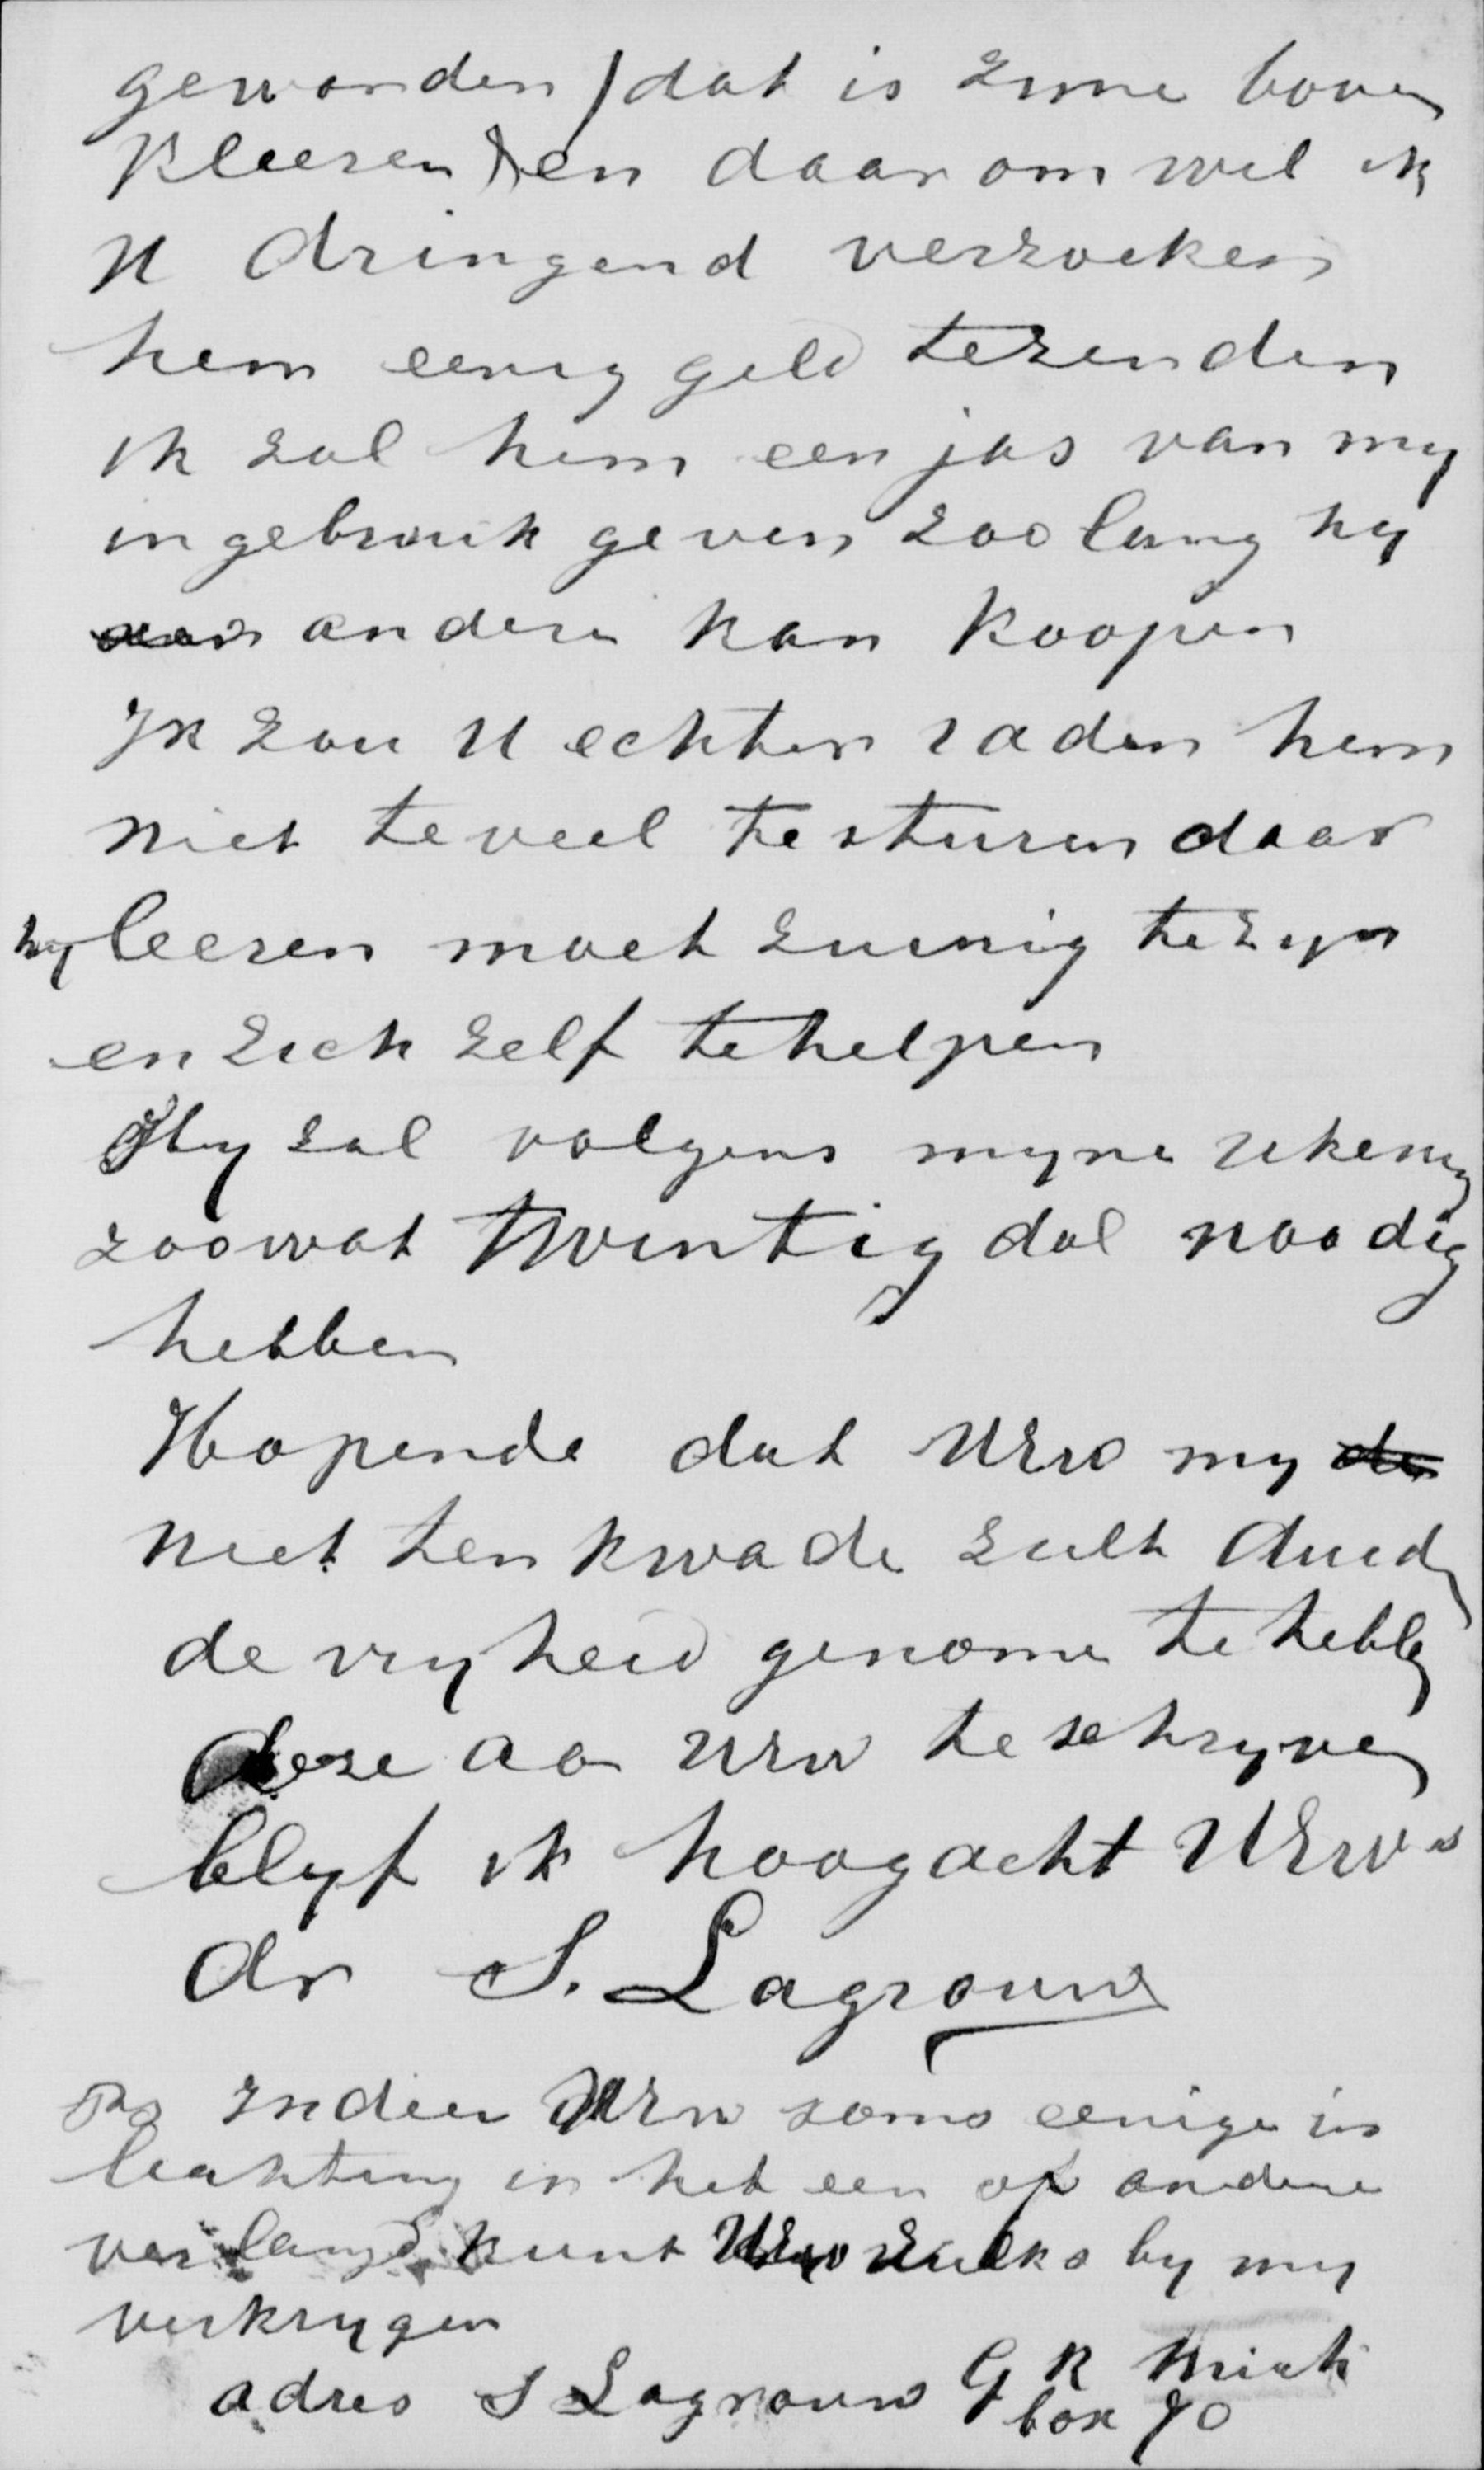 geworden (dat is zyne boven
kleeren) en daarom wil ik
U dringend verzoeken
hem eenig geld tezenden
ik zal hem een jas van my
in gebruik geven zoolang hy
andere kan koopen
Ik zou U echter raden hem
niet teveel te sturen daar
hy leeren moet zuinig te zyn
en zich zelf te helpen
Hy zal volgens myne rekening
zoowat twintig dol noodig
hebben
Hopende dat UEw my
niet ten kwade zult duid
de vryheid genome te hebb
deze aa UEw te schryven
blyf ik hoogacht UEws
dr S. Lagrouw
Ps Indien UEw soms eenige in
lichting in het een of andere
verlangd kunt UEw zulks by my
verkrygen
adres S Lagrouw G R Mich
box 70